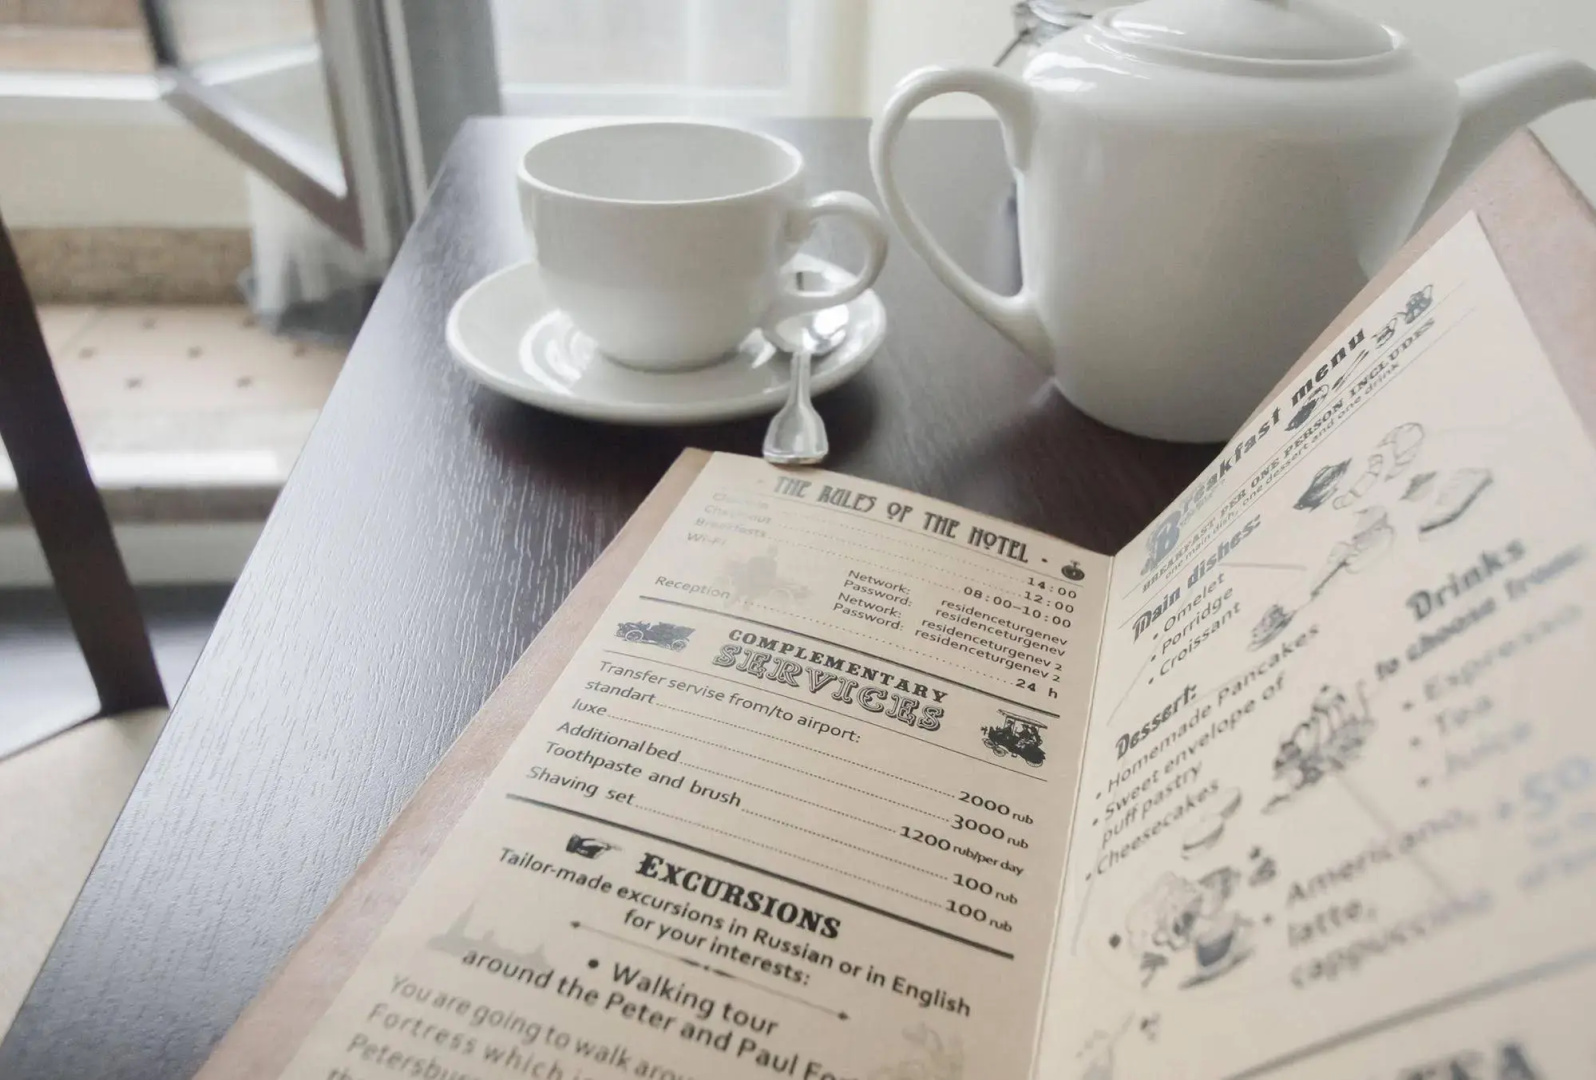 THE RULES OF THE HOTEL
Check-out 14:00
Breakfasts 12:00
Wi-Fi 08:00-10:00
Network: residenceturgenev
Password: residenceturgenev
Network: residenceturgenev 2
Password: residenceturgenev 2
Reception 24 h
COMPLEMENTARY
SERVICES
Transfer servise from/to airport:
standart 2000 rub
luxe 3000 rub
Additional bed 1200 rub/per day
Toothpaste and brush 100 rub
Shaving set 100 rub
EXCURSIONS
Tailor-made excursions in Russian or in English
for your interests:
• Walking tour
around the Peter and Paul
You are going to walk
Fortress which
Breakfast menu
BREAKFAST PER ONE PERSON INCLUDES
one main dish, one dessert and one drink
Main dishes:
• Omelet
• Porridge
• Croissant
Dessert:
• Homemade Pancakes
• Sweet envelope of
puff pastry
• Cheesecakes
Drinks
to choose from:
• Espresso
• Tea
• Juice
• Americano,
latte,
cappuccino